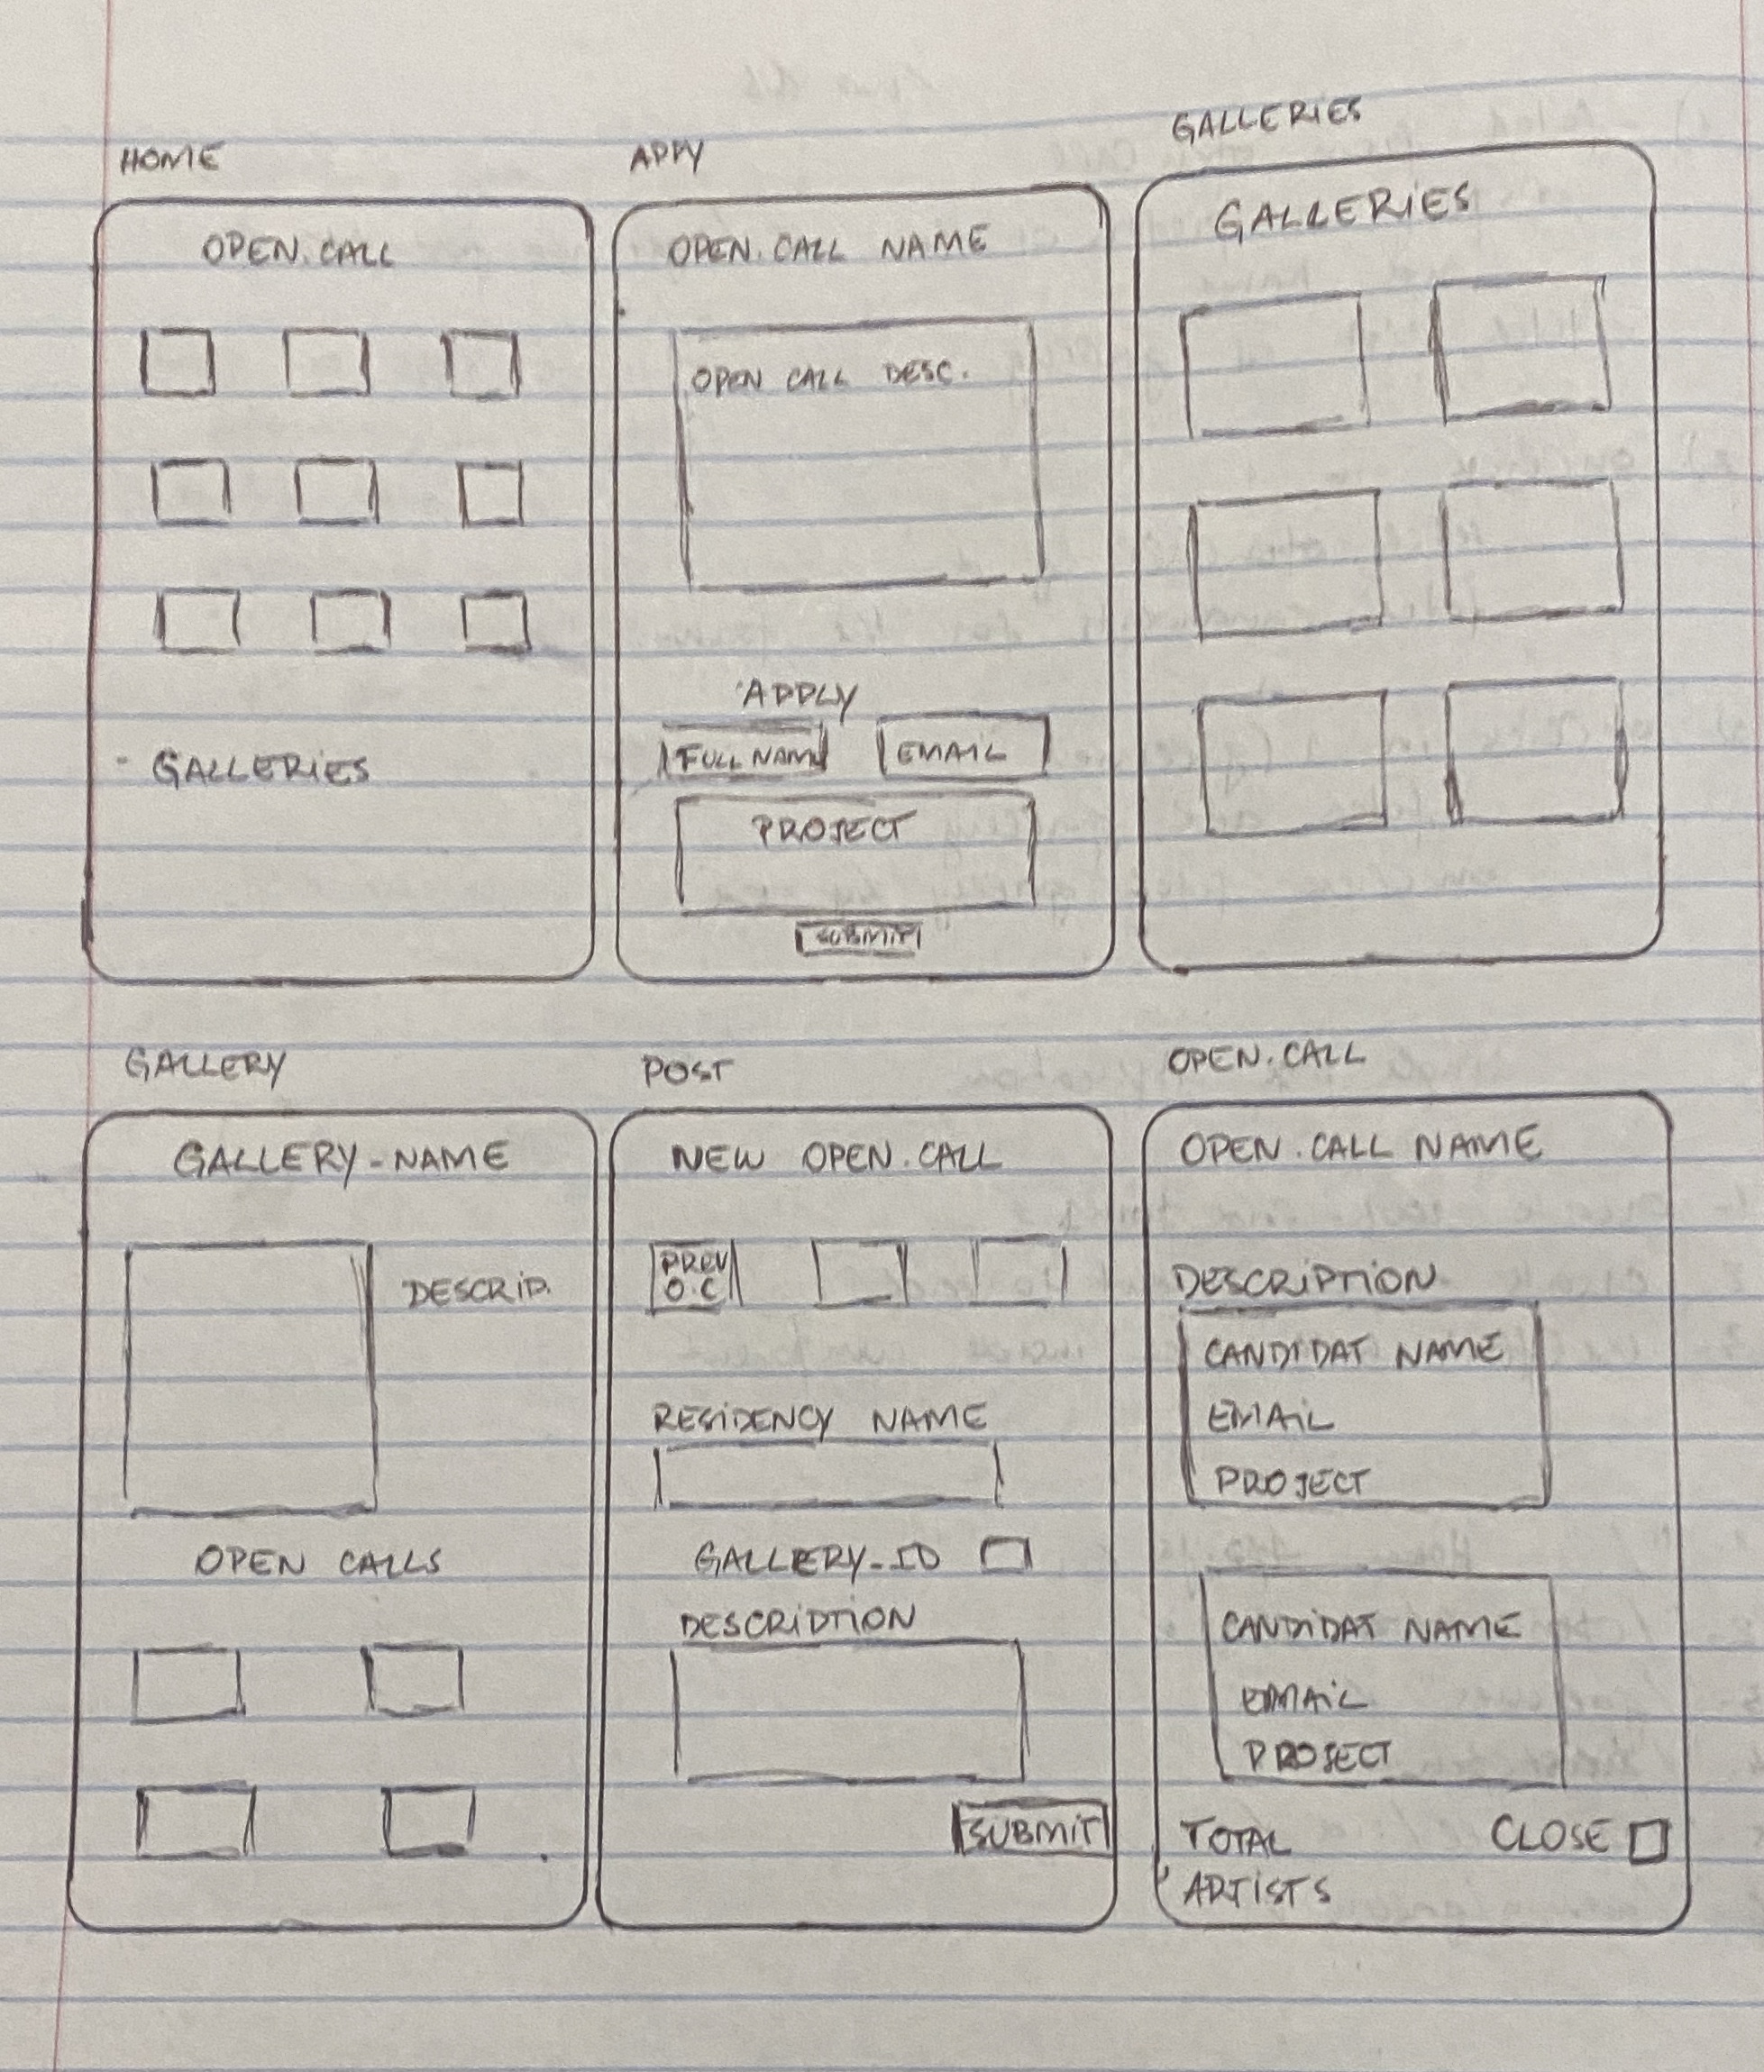 HOME
OPEN.CALL
GALLERIES
APPY
OPEN.CALL NAME
OPEN CALL DESC.
APPLY
FULL NAME
EMAIL
PROJECT
SUBMIT
GALLERIES
GALLERIES
GALLERY
GALLERY-NAME
DESCRIP.
OPEN CALLS
POST
NEW OPEN.CALL
PREV
O.C
RESIDENCY NAME
GALLERY-ID
DESCRIPTION
SUBMIT
OPEN.CALL
OPEN.CALL NAME
DESCRIPTION
CANDIDAT NAME
EMAIL
PROJECT
CANDIDAT NAME
EMAIL
PROJECT
TOTAL
ARTISTS
CLOSE